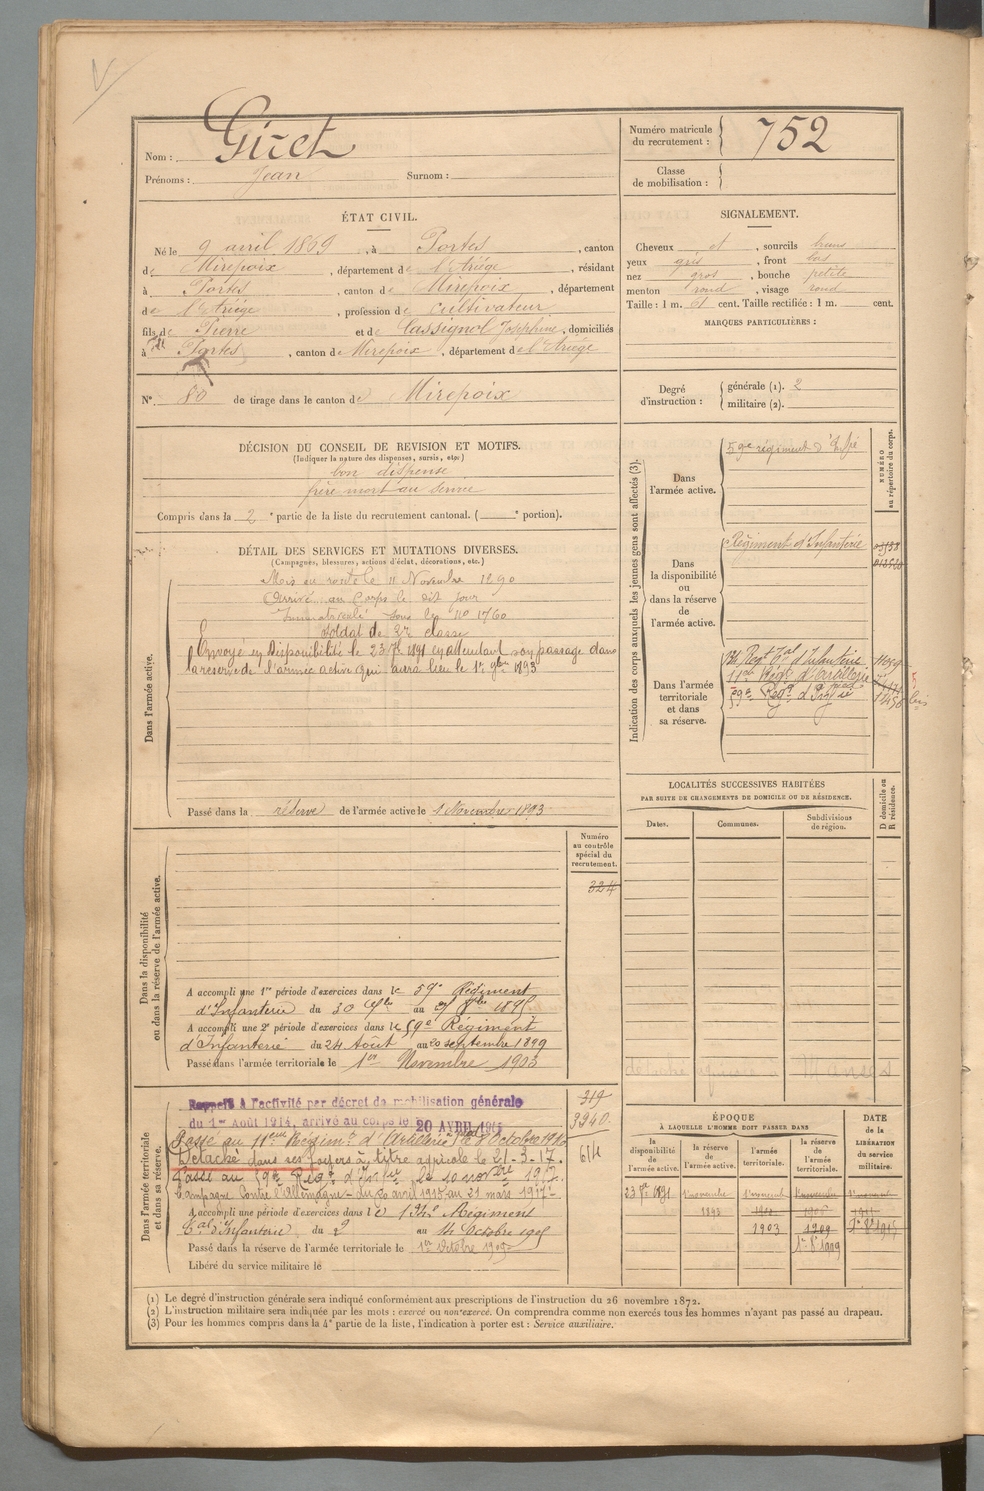 Nom : Giret
Prénoms : Jean Surnom :
Numéro matricule du recrutement : 752
Classe de mobilisation :
ÉTAT CIVIL.
Né le 9 avril 1869, à Portes, canton
de Mirepoix, département de l'Ariége, résidant
à Portes, canton de Mirepoix, département
de l'Ariége, profession de cultivateur
fils de Pierre et de Cassignol Joséphine, domiciliés
à Portes, canton de Mirepoix, département de l'Ariége
N° 80 de tirage dans le canton de Mirepoix
SIGNALEMENT.
Cheveux et, sourcils bruns
yeux gris, front bas
nez gros, bouche petite
menton rond, visage rond
Taille : 1 m. 61 cent. Taille rectifiée : 1 m. cent.
MARQUES PARTICULIÈRES :
Degré d'instruction : générale (1). 2
militaire (2).
DÉCISION DU CONSEIL DE REVISION ET MOTIFS.
(Indiquer la nature des dispenses, sursis, etc.)
bon dispensé
frère mort au service
Compris dans la 2e partie de la liste du recrutement cantonal. ( e portion).
DÉTAIL DES SERVICES ET MUTATIONS DIVERSES.
(Campagnes, blessures, actions d'éclat, décorations, etc.)
Dans l'armée active.
Mis en route le 11 Novembre 1890
Arrivé au Corps le dit jour
Immatriculé sous le n° 1760
Soldat de 2e classe
Envoyé en Disponibilité le 23 7bre 1891 en attendant son passage dans
la réserve de l'armée active qui aura lieu le 1er 9bre 1893
Passé dans la réserve de l'armée active le 1 Novembre 1893
Indication des corps auxquels les jeunes gens sont affectés (3).
NUMÉRO au répertoire du corps.
Dans l'armée active.
59e régiment d'Infie
Dans la disponibilité ou dans la réserve de l'armée active.
Régiment d'Infanterie
Dans l'armée territoriale et dans sa réserve.
134e Regt Tal d'Infanterie
11eme Régt d'Artillerie
59e Regt d'Infie
bis
LOCALITÉS SUCCESSIVES HABITÉES
PAR SUITE DE CHANGEMENTS DE DOMICILE OU DE RÉSIDENCE.
Dates. Communes. Subdivisions de région. D domicile ou R résidence.
Dans la disponibilité ou dans la réserve de l'armée active.
Numéro au contrôle spécial du recrutement.
324
A accompli une 1re période d'exercices dans le 59e Régiment
d'Infanterie du 30 au 1895
A accompli une 2e période d'exercices dans le 59e Régiment
d'Infanterie du 24 Août au 20 septembre 1899
Passé dans l'armée territoriale le 1er Novembre 1903
Dans l'armée territoriale et dans sa réserve.
Rappelé à l'activité par décret de mobilisation générale
du 1er Août 1914, arrivé au corps le 20 AVRIL 1915
Passé au 11eme Régimt d'Artillerie le 8 Octobre 1916
Détaché dans ses foyers à titre agricole le 21-3-17.
Passé au 59e Regt d'Infie le 10 novbre 1917.
Campagne Contre l'Allemagne - du 20 avril 1915 au 21 mars 1917-
A accompli une période d'exercices dans le 134e Régiment
Tal d'Infanterie du 2 au 14 Octobre 1905
Passé dans la réserve de l'armée territoriale le 1er Octobre 1909
Libéré du service militaire le
319
3940
614
ÉPOQUE
À LAQUELLE L'HOMME DOIT PASSER DANS
la disponibilité de l'armée active. la réserve de l'armée active. l'armée territoriale. la réserve de l'armée territoriale.
DATE de la LIBÉRATION du service militaire.
23 7bre 1891 1er novembre 1er novembre 1er novembre 1er novembre
1893
1903 1909
1er 8e 1909
(1) Le degré d'instruction générale sera indiqué conformément aux prescriptions de l'instruction du 26 novembre 1872.
(2) L'instruction militaire sera indiquée par les mots : exercé ou non-exercé. On comprendra comme non exercés tous les hommes n'ayant pas passé au drapeau.
(3) Pour les hommes compris dans la 4e partie de la liste, l'indication à porter est : Service auxiliaire.